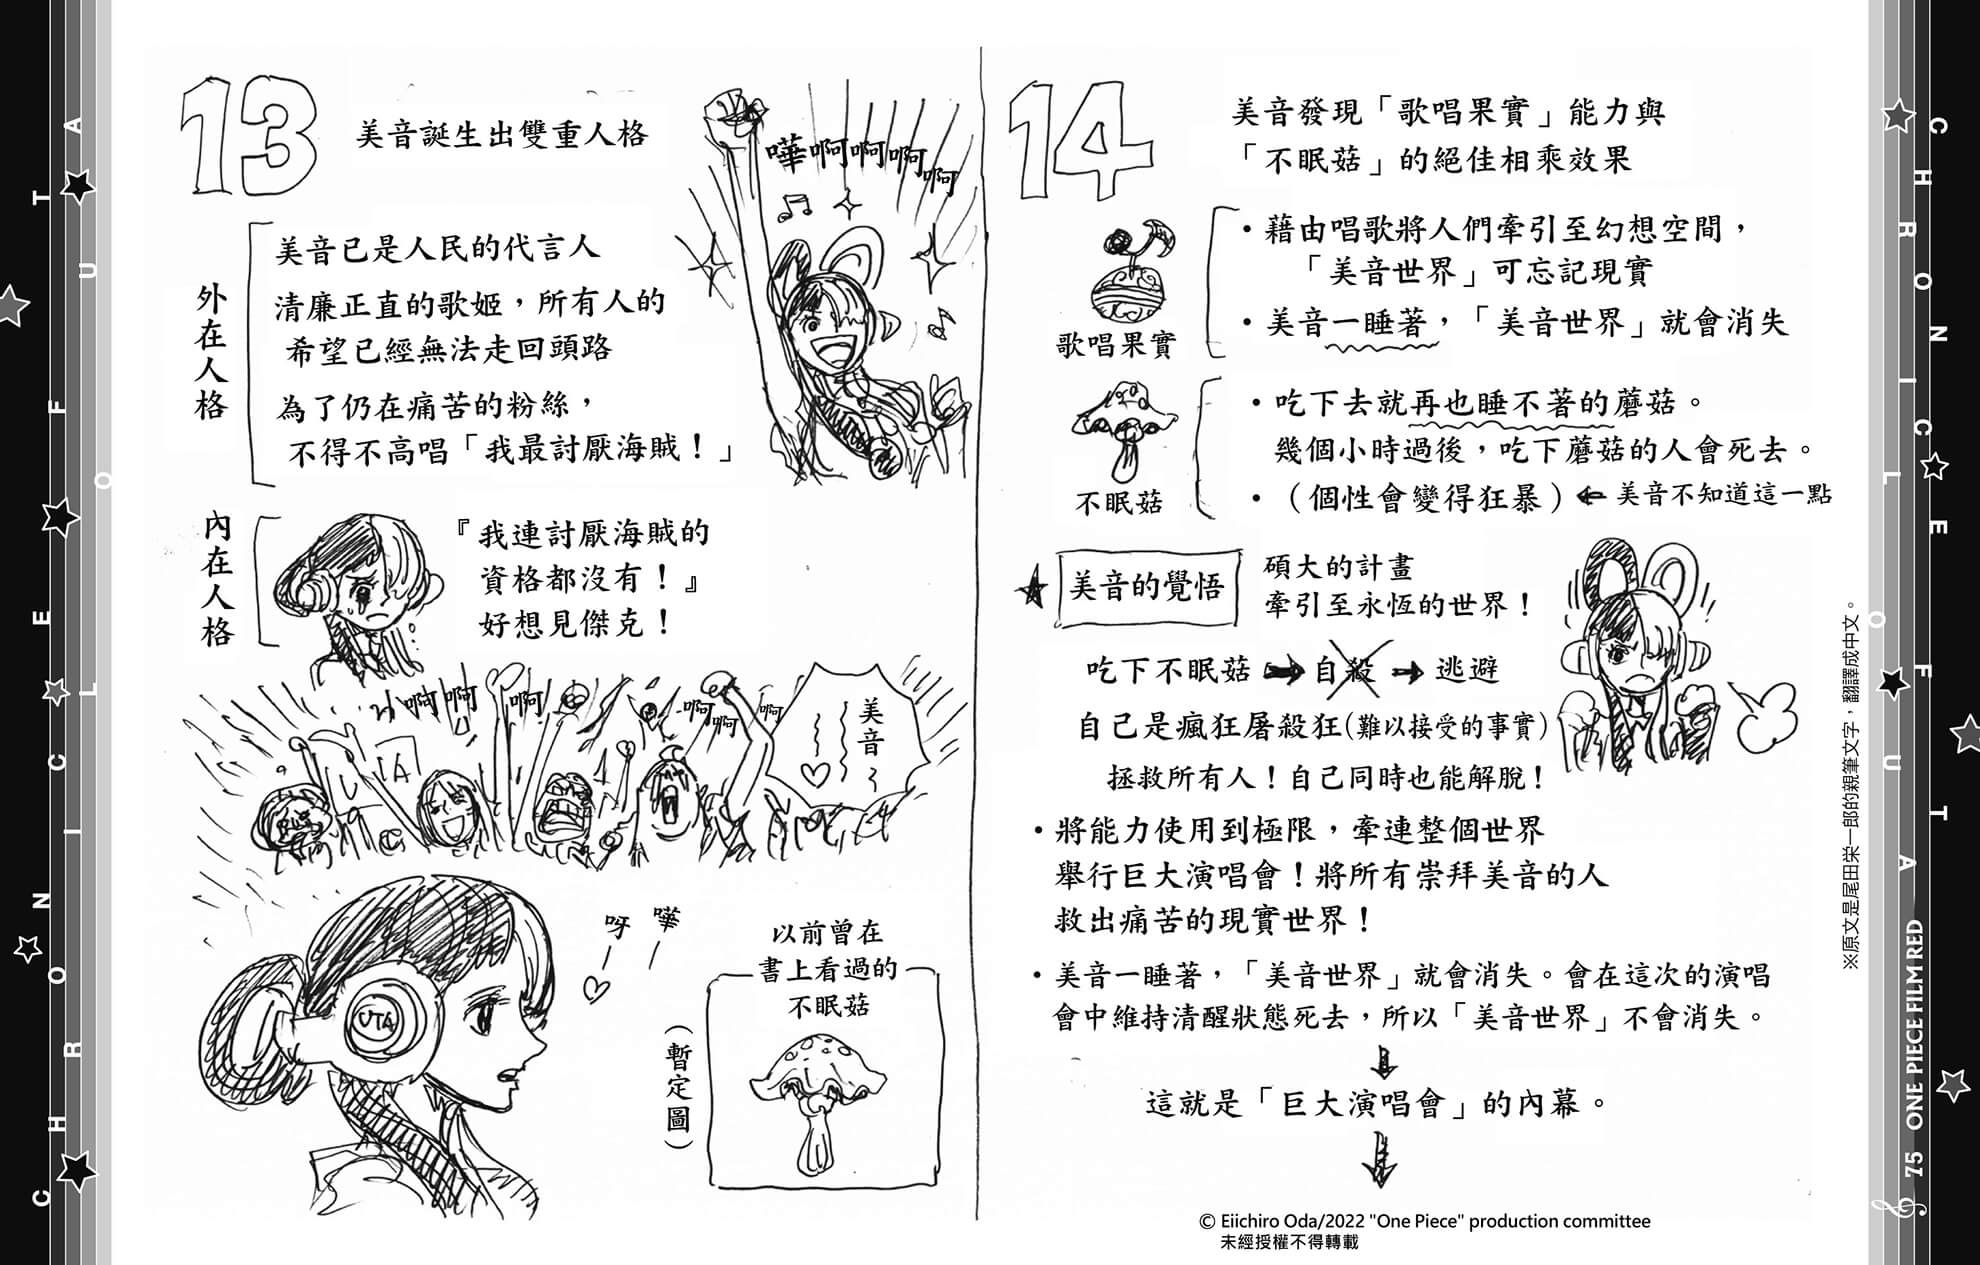 13
美音誕生出雙重人格
嘩啊啊啊啊
外在人格
美音已是人民的代言人
清廉正直的歌姬，所有人的
希望已經無法走回頭路
為了仍在痛苦的粉絲，
不得不高唱「我最討厭海賊！」
內在人格
『我連討厭海賊的
資格都沒有！』
好想見傑克！
啊啊
啊
啊啊
啊
美音~
A
UTA
呀
嘩
以前曾在
書上看過的
不眠菇
（暫定圖）
14
美音發現「歌唱果實」能力與
「不眠菇」的絕佳相乘效果
歌唱果實
・藉由唱歌將人們牽引至幻想空間，
「美音世界」可忘記現實
・美音一睡著，「美音世界」就會消失
不眠菇
・吃下去就再也睡不著的蘑菇。
幾個小時過後，吃下蘑菇的人會死去。
・（個性會變得狂暴）← 美音不知道這一點
★ 美音的覺悟
碩大的計畫
牽引至永恆的世界！
吃下不眠菇 → 自殺 → 逃避
自己是瘋狂屠殺狂(難以接受的事實)
拯救所有人！自己同時也能解脫！
・將能力使用到極限，牽連整個世界
舉行巨大演唱會！將所有崇拜美音的人
救出痛苦的現實世界！
・美音一睡著，「美音世界」就會消失。會在這次的演唱
會中維持清醒狀態死去，所以「美音世界」不會消失。
↓
這就是「巨大演唱會」的內幕。
↓
© Eiichiro Oda/2022 "One Piece" production committee
未經授權不得轉載
※原文是尾田栄一郎的親筆文字，翻譯成中文。
75 ONE PIECE FILM RED
CHRONICLE OF UTA
CHRONICLE OF UTA